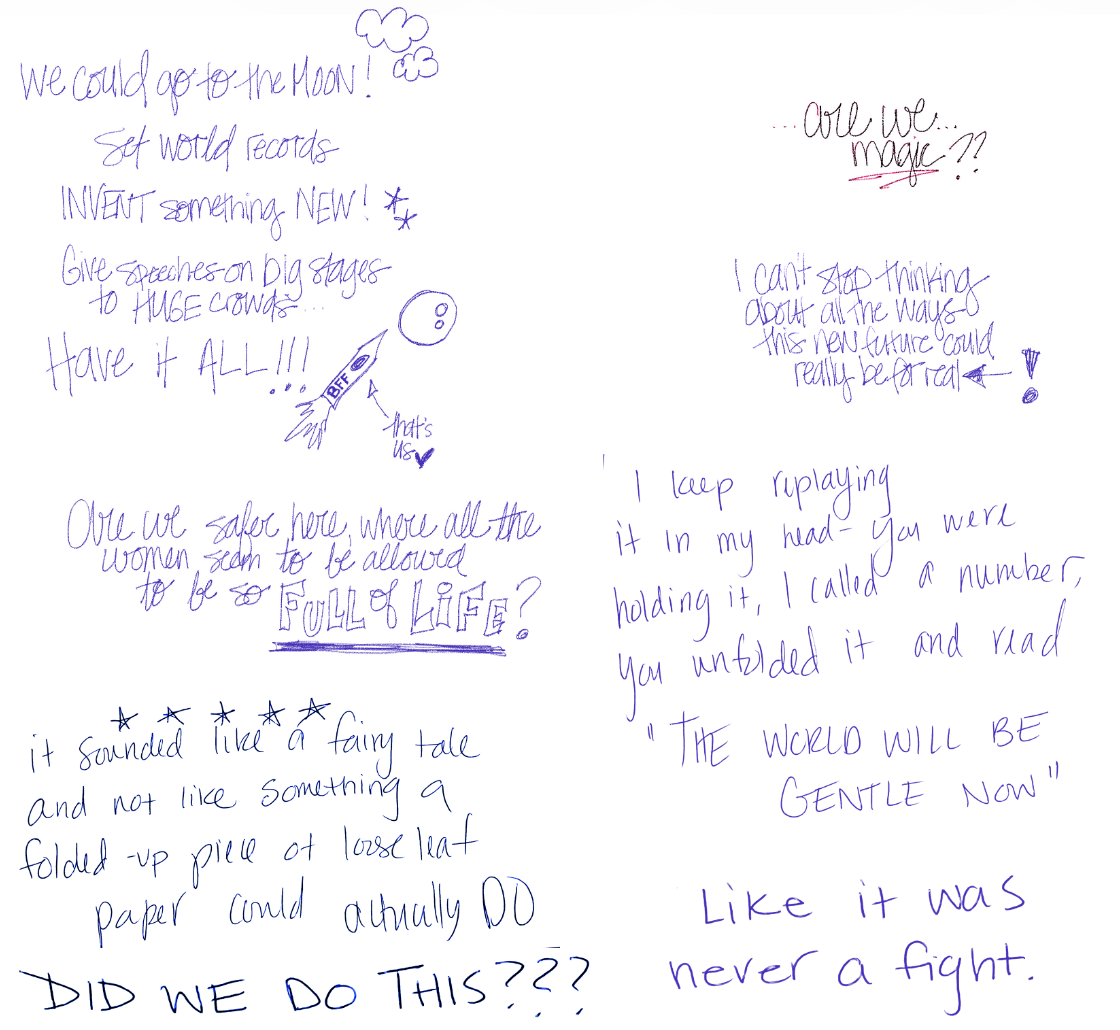 We could go to the MOON!
Set world records
INVENT something NEW!
Give speeches on big stages
to HUGE crowds...
Have it ALL!!!
BFF
that's
us
Are we safer here, where all the
women seem to be allowed
to be so FULL of LiFE?
it sounded like a fairy tale
and not like something a
folded-up piece of loose leaf
paper could actually DO
DID WE DO THIS???
...are we...
magic??
I can't stop thinking
about all the ways
this new future could
really be for real
!
I keep replaying
it in my head- you were
holding it, I called a number,
you unfolded it and read
"THE WORLD WILL BE
GENTLE NOW"
Like it was
never a fight.